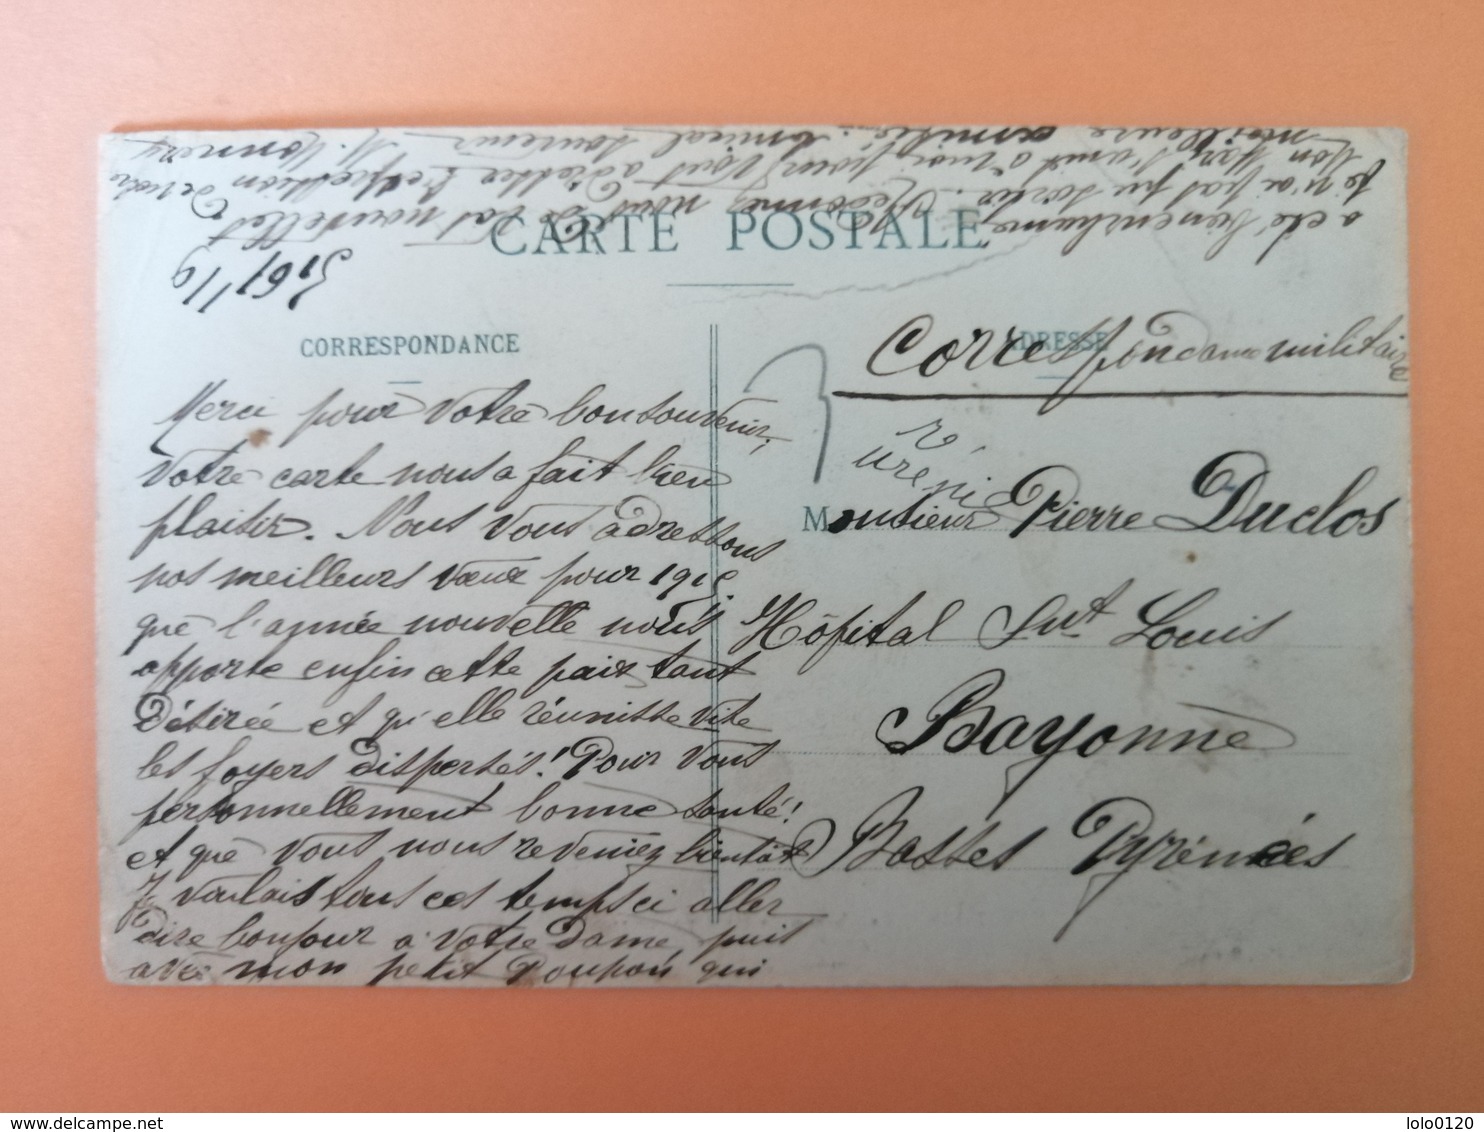 CARTE POSTALE
CORRESPONDANCE
ADRESSE
Merci pour votre bon souvenir,
votre carte nous a fait bien
plaisir. Nous vous adressons
nos meilleurs vœux pour 1915
que l'année nouvelle nous
apporte enfin cette paix tant
désirée et qu'elle réunisse vite
les foyers dispersés! Pour vous
personnellement bonne santé!
et que vous nous reveniez bientôt
J voulais tous ces temps ci aller
dire bonjour à votre Dame, puis
avec mon petit Poupon qui
a été bien enrhumé
je n'ai pas pu sortir. Redonnez nous de vos nouvelles
mon Mari s'unit à moi pour vous adresser l'expression de notre
meilleure amitié. Amical souvenir
Correspondance militaire
Monsieur Pierre Duclos
Hôpital Snt Louis
Bayonne
Basses Pyrénées
lolo0120
delcampe.net